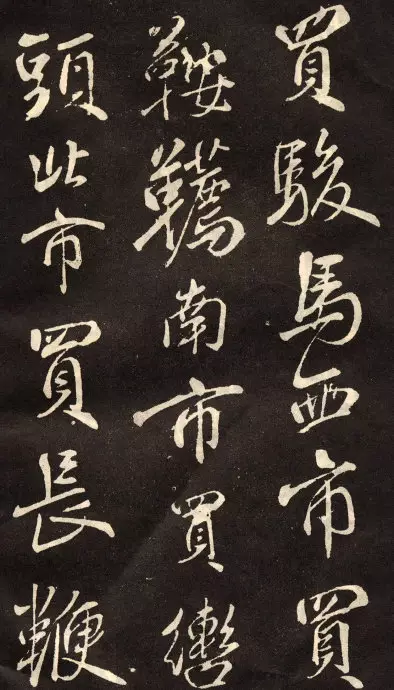 買駿馬西市買
鞍韉南市買轡
頭北市買長鞭